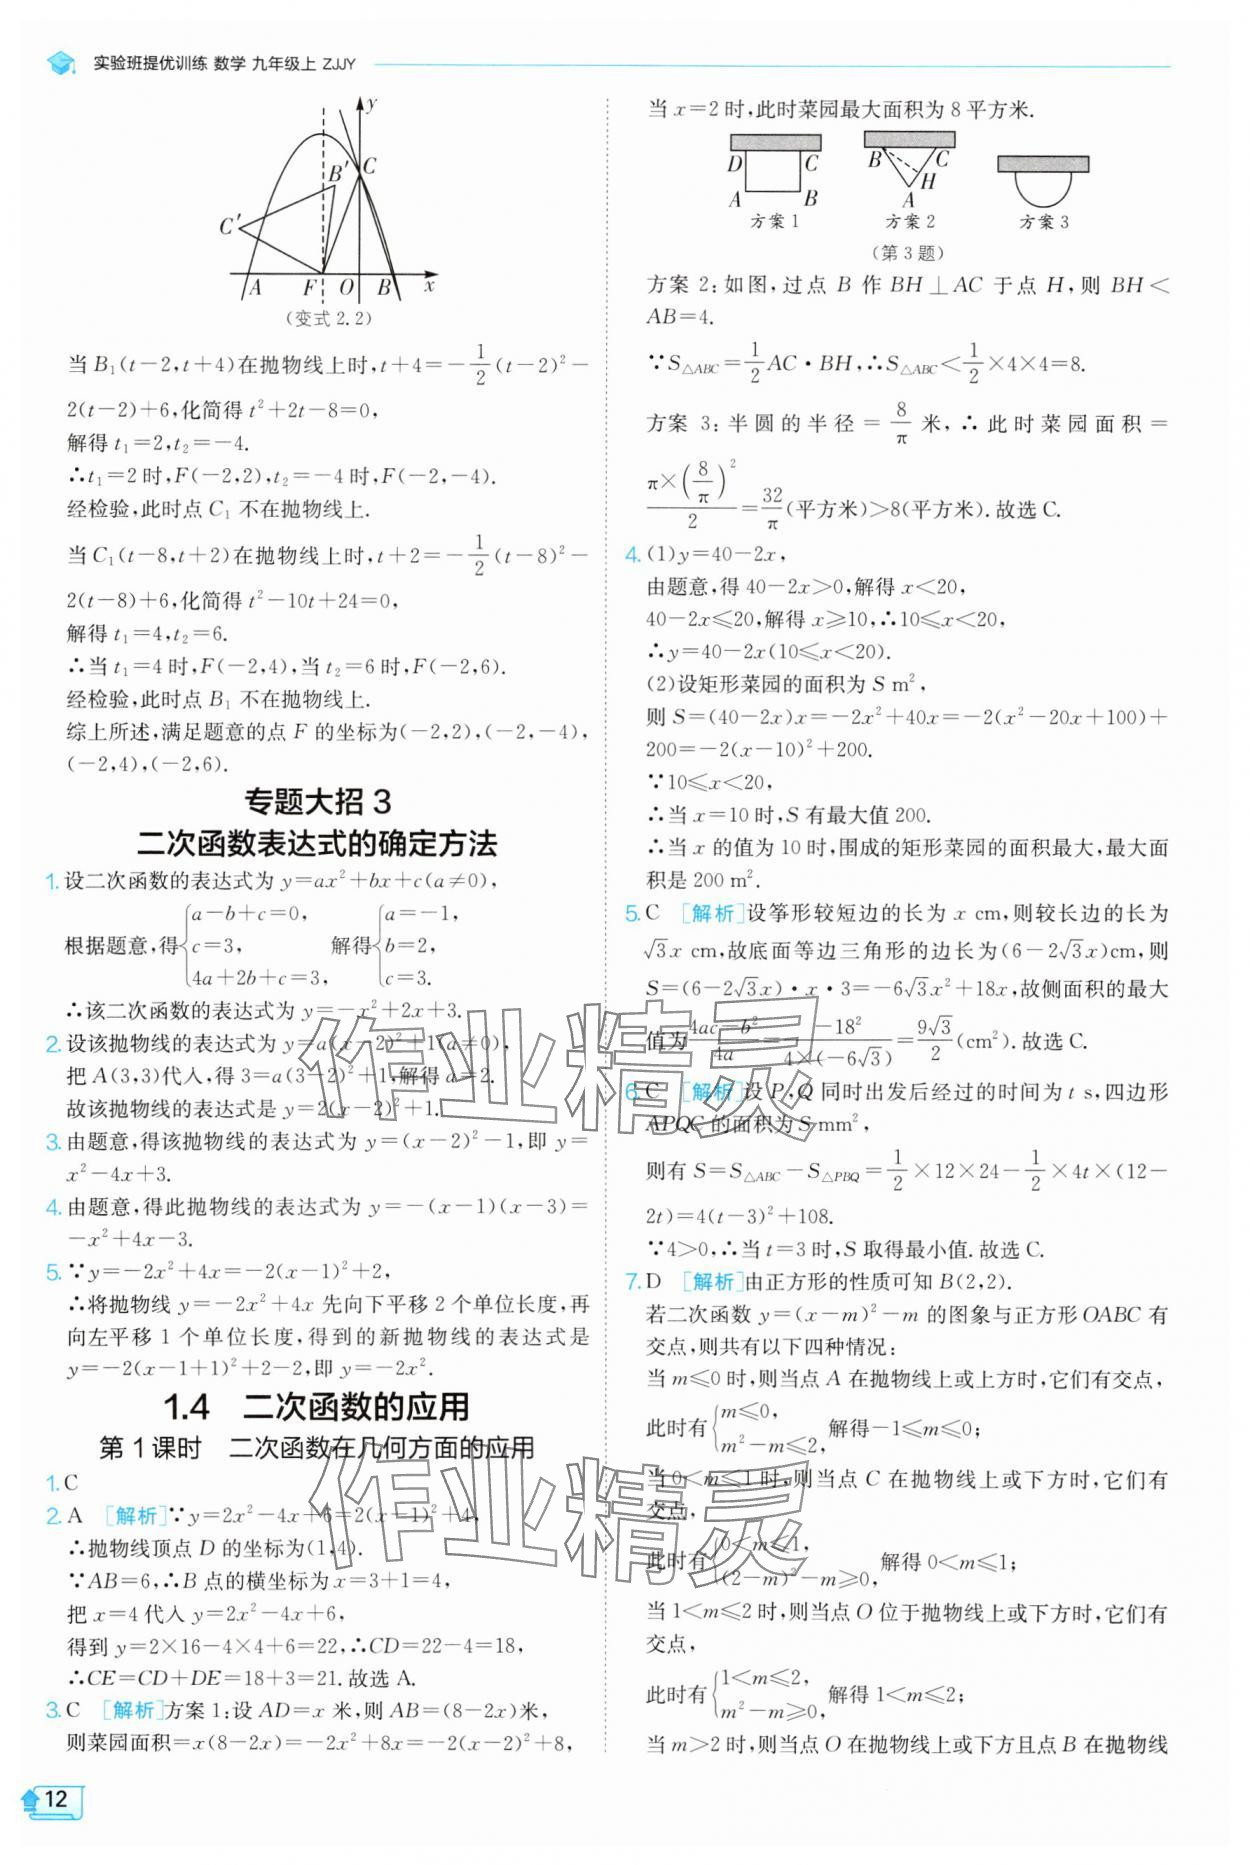 实验班提优训练 数学 九年级上 ZJJY
y
C
B′
C′
A F O B x
(变式2.2)
当B₁(t−2,t+4)在抛物线上时,t+4=−1/2(t−2)²−
2(t−2)+6,化简得t²+2t−8=0,
解得t₁=2,t₂=−4.
∴t₁=2时,F(−2,2),t₂=−4时,F(−2,−4).
经检验,此时点C₁不在抛物线上.
当C₁(t−8,t+2)在抛物线上时,t+2=−1/2(t−8)²−
2(t−8)+6,化简得t²−10t+24=0,
解得t₁=4,t₂=6.
∴当t₁=4时,F(−2,4),当t₂=6时,F(−2,6).
经检验,此时点B₁不在抛物线上.
综上所述,满足题意的点F的坐标为(−2,2),(−2,−4),
(−2,4),(−2,6).
专题大招3
二次函数表达式的确定方法
1.设二次函数的表达式为y=ax²+bx+c(a≠0),
根据题意,得{a−b+c=0, c=3, 4a+2b+c=3, 解得{a=−1, b=2, c=3.
∴该二次函数的表达式为y=−x²+2x+3.
2.设该抛物线的表达式为y=a(x−2)²+1(a≠0),
把A(3,3)代入,得3=a(3−2)²+1,解得a=2.
故该抛物线的表达式是y=2(x−2)²+1.
3.由题意,得该抛物线的表达式为y=(x−2)²−1,即y=
x²−4x+3.
4.由题意,得此抛物线的表达式为y=−(x−1)(x−3)=
−x²+4x−3.
5.∵y=−2x²+4x=−2(x−1)²+2,
∴将抛物线y=−2x²+4x先向下平移2个单位长度,再
向左平移1个单位长度,得到的新抛物线的表达式是
y=−2(x−1+1)²+2−2,即y=−2x².
1.4 二次函数的应用
第1课时 二次函数在几何方面的应用
1.C
2.A [解析]∵y=2x²−4x+6=2(x−1)²+4,
∴抛物线顶点D的坐标为(1,4).
∵AB=6,∴B点的横坐标为x=3+1=4,
把x=4代入y=2x²−4x+6,
得到y=2×16−4×4+6=22,∴CD=22−4=18,
∴CE=CD+DE=18+3=21.故选A.
3.C [解析]方案1:设AD=x米,则AB=(8−2x)米,
则菜园面积=x(8−2x)=−2x²+8x=−2(x−2)²+8,
当x=2时,此时菜园最大面积为8平方米.
D C B C
A B A H
方案1 方案2 方案3
(第3题)
方案2:如图,过点B作BH⊥AC于点H,则BH<
AB=4.
∵S△ABC=1/2AC·BH,∴S△ABC<1/2×4×4=8.
方案3:半圆的半径=8/π米,∴此时菜园面积=
π×(8/π)²/2=32/π(平方米)>8(平方米).故选C.
4.(1)y=40−2x,
由题意,得40−2x>0,解得x<20,
40−2x≤20,解得x≥10,∴10≤x<20,
∴y=40−2x(10≤x<20).
(2)设矩形菜园的面积为S m²,
则S=(40−2x)x=−2x²+40x=−2(x²−20x+100)+
200=−2(x−10)²+200.
∵10≤x<20,
∴当x=10时,S有最大值200.
∴当x的值为10时,围成的矩形菜园的面积最大,最大面
积是200 m².
5.C [解析]设筝形较短边的长为x cm,则较长边的长为
√3x cm,故底面等边三角形的边长为(6−2√3x)cm,则
S=(6−2√3x)·x·3=−6√3x²+18x,故侧面积的最大
值为(4ac−b²)/4a=−18²/(4×(−6√3))=9√3/2(cm²).故选C.
6.C [解析]设P,Q同时出发后经过的时间为t s,四边形
APQC的面积为S mm²,
则有S=S△ABC−S△PBQ=1/2×12×24−1/2×4t×(12−
2t)=4(t−3)²+108.
∵4>0,∴当t=3时,S取得最小值.故选C.
7.D [解析]由正方形的性质可知B(2,2).
若二次函数y=(x−m)²−m的图象与正方形OABC有
交点,则共有以下四种情况:
当m≤0时,则当点A在抛物线上或上方时,它们有交点,
此时有{m≤0, m²−m≤2, 解得−1≤m≤0;
当0<m≤1时,则当点C在抛物线上或下方时,它们有
交点,
此时有{0<m≤1, (2−m)²−m≥0, 解得0<m≤1;
当1<m≤2时,则当点O位于抛物线上或下方时,它们有
交点,
此时有{1<m≤2, m²−m≥0, 解得1<m≤2;
当m>2时,则当点O在抛物线上或下方且点B在抛物线
12
作业精灵
作业精灵